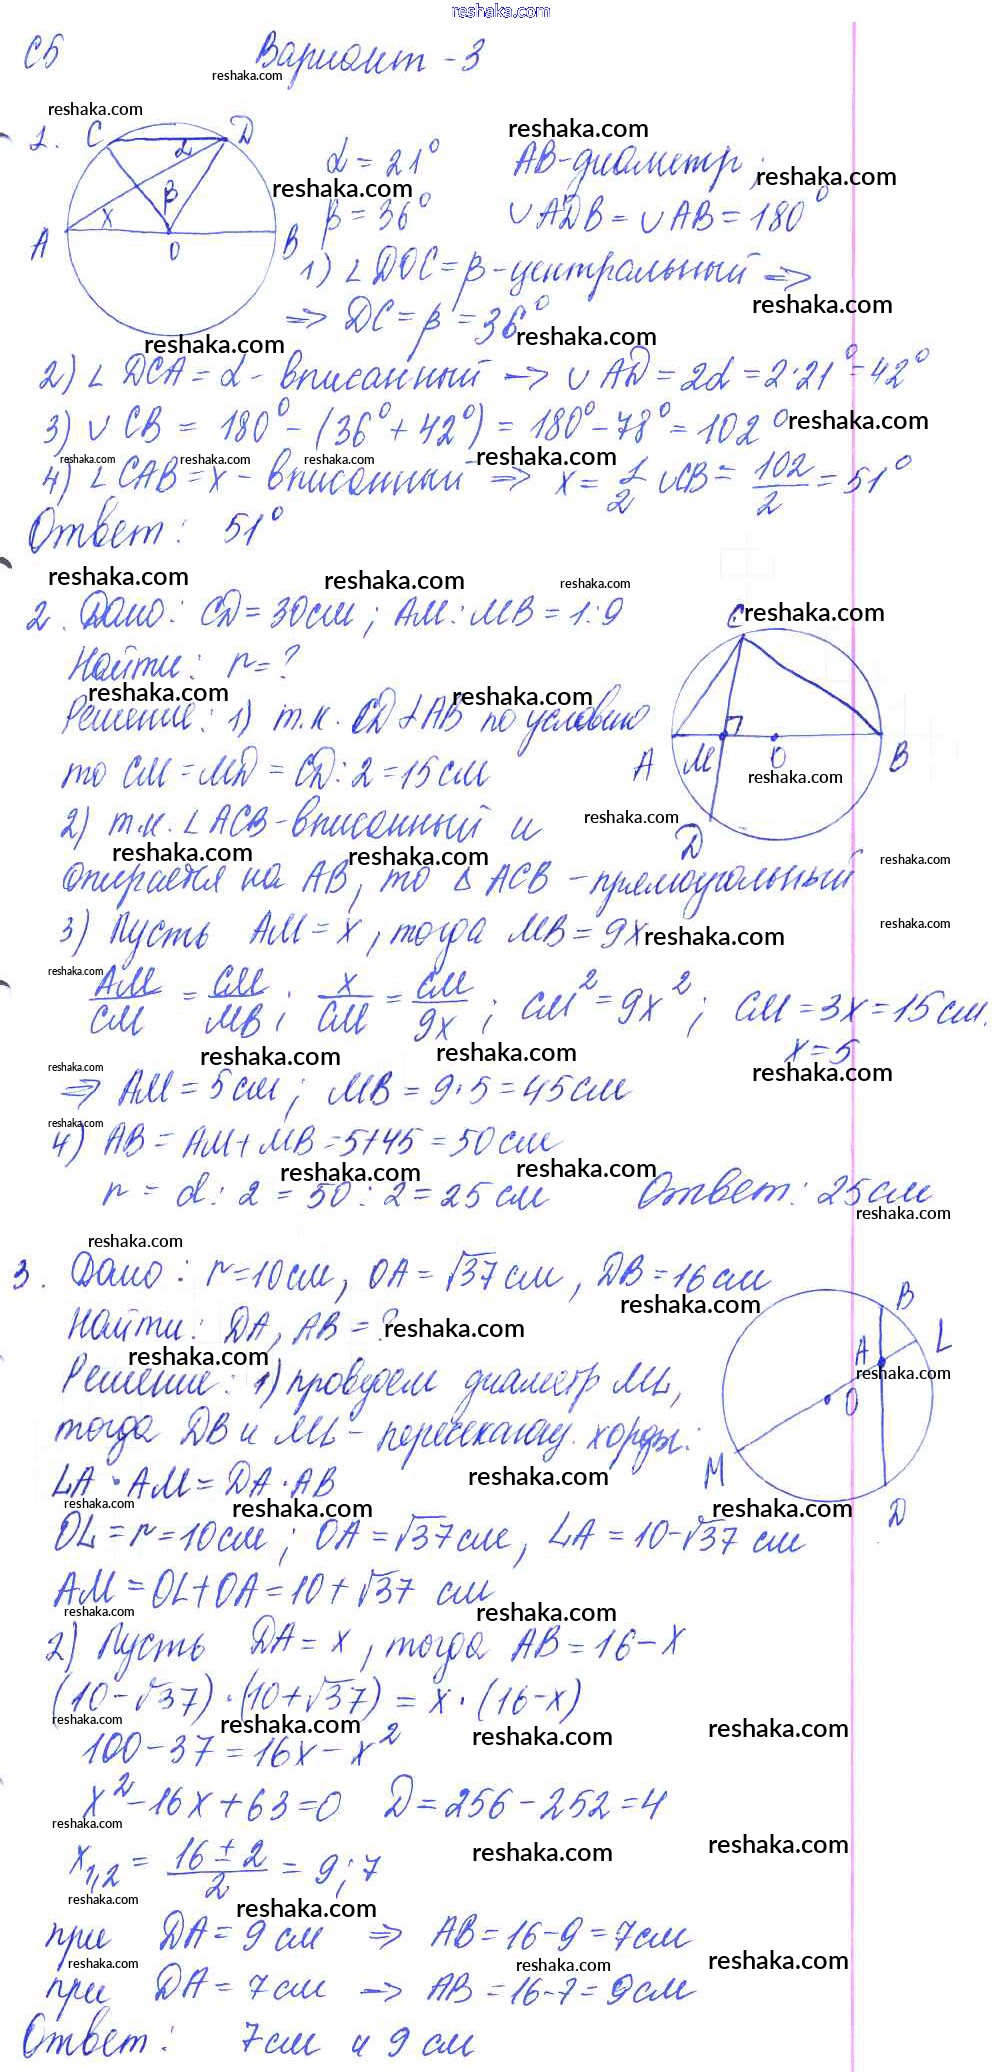 reshaka.com
С5 Вариант - 3
1. C D α β x A O B
α = 21° AB - диаметр;
β = 36° ∪ADB = ∪AB = 180°
1) ∠DOC = β - центральный ⇒
⇒ DC = β = 36°
2) ∠DCA = α - вписанный → ∪AD = 2α = 2·21° = 42°
3) ∪CB = 180° - (36° + 42°) = 180° - 78° = 102°
4) ∠CAB = x - вписанный ⇒ x = 1/2 ∪CB = 102/2 = 51°
Ответ: 51°
2. Дано: CD = 30 см; AM : MB = 1:9
Найти: r = ?
C A M O B D
Решение: 1) т.к. CD ⊥ AB по условию
то CM = MD = CD : 2 = 15 см
2) т.к. ∠ACB - вписанный и
опирается на AB, то △ ACB - прямоугольный
3) Пусть AM = x, тогда MB = 9x
AM/CM = CM/MB; x/CM = CM/9x; CM² = 9x²; CM = 3x = 15 см.
x = 5
⇒ AM = 5 см; MB = 9·5 = 45 см
4) AB = AM + MB = 5+45 = 50 см
r = d : 2 = 50 : 2 = 25 см Ответ: 25 см
3. Дано: r = 10 см, OA = √37 см, DB = 16 см
Найти: DA, AB = ?
B L A O M D
Решение: 1) проведем диаметр ML,
тогда DB и ML - пересекающ. хорды:
LA · AM = DA · AB
OL = r = 10 см; OA = √37 см, LA = 10 - √37 см
AM = OL + OA = 10 + √37 см
2) Пусть DA = x, тогда AB = 16 - x
(10 - √37) · (10 + √37) = x · (16 - x)
100 - 37 = 16x - x²
x² - 16x + 63 = 0 D = 256 - 252 = 4
x₁,₂ = 16 ± 2/2 = 9; 7
при DA = 9 см ⇒ AB = 16 - 9 = 7 см
при DA = 7 см → AB = 16 - 7 = 9 см
Ответ: 7 см и 9 см